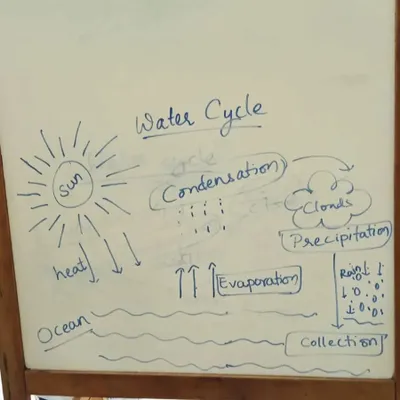 Water Cycle
Sun
Condensation
Clouds
Precipitation
heat
Evaporation
Rain
Ocean
Collection